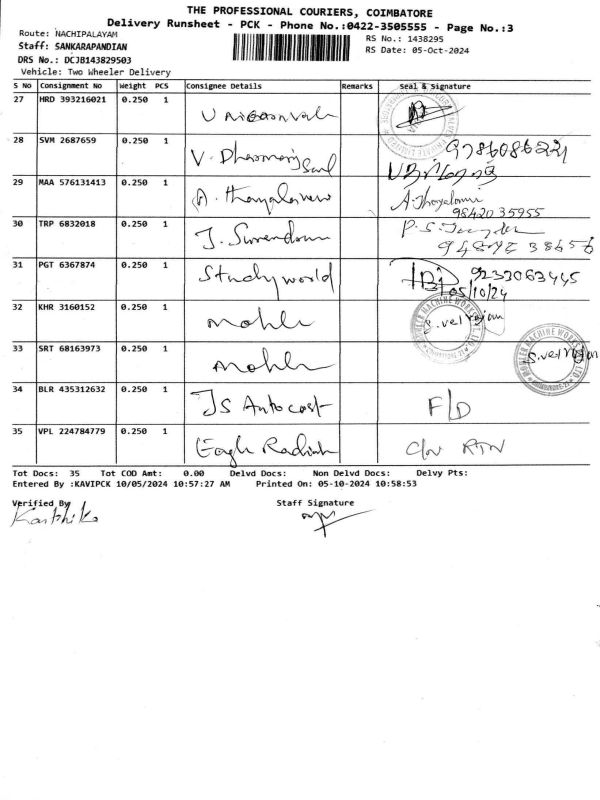 THE PROFESSIONAL COURIERS, COIMBATORE
Delivery Runsheet - PCK - Phone No.:0422-3505555 - Page No.:3
Route: NACHIPALAYAM
RS No.: 1438295
Staff: SANKARAPANDIAN
RS Date: 05-Oct-2024
DRS No.: DCJB143829503
Vehicle: Two Wheeler Delivery
S No Consignment No Weight PCS Consignee Details Remarks Seal & Signature
27 HRD 393216021 0.250 1
28 SVM 2687659 0.250 1 V.
29 MAA 576131413 0.250 1 A.
9842035955
30 TRP 6832018 0.250 1 J. Surendran P.S.
31 PGT 6367874 0.250 1 Study world 9232063445
05/10/24
32 KHR 3160152 0.250 1 mohler S.vel rajan
33 SRT 68163973 0.250 1 mohler S.vel rajan
34 BLR 435312632 0.250 1 JS Autocast F/D
35 VPL 224784779 0.250 1 Eagle C/N RTN
Tot Docs: 35 Tot COD Amt: 0.00 Delvd Docs: Non Delvd Docs: Delvy Pts:
Entered By :KAVIPCK 10/05/2024 10:57:27 AM Printed On: 05-10-2024 10:58:53
Verified By Staff Signature